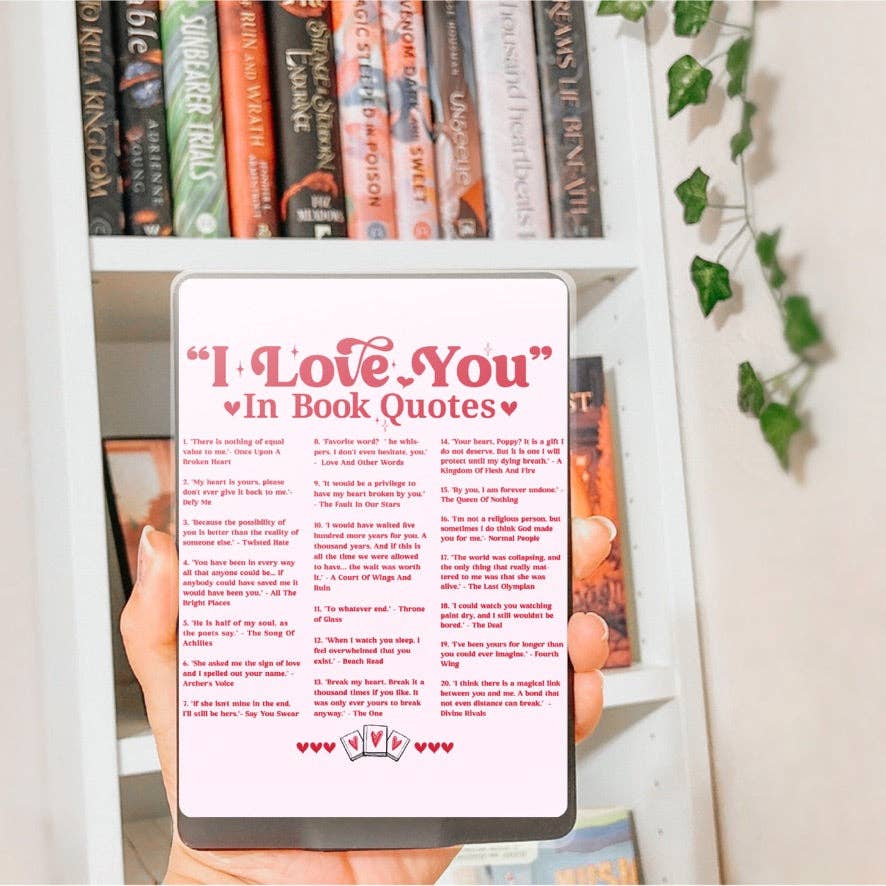 TO KILL A KINGDOM
ble ADRIENNE YOUNG
SUNBEARER TRIALS
RUIN AND WRATH
STRANGE STUBBORN ENDURANCE
FOZ MEADOWS
AGIC STEEPED IN POISON
VENOM DARK AND SWEET
UNSEELIE
thousand heartbeats
REAMS LIE BENEATH
ST
“I Love You”
In Book Quotes
1. 'There is nothing of equal
value to me.'- Once Upon A
Broken Heart
2. 'My heart is yours, please
don't ever give it back to me.'-
Defy Me
3. 'Because the possibility of
you is better than the reality of
someone else.' - Twisted Hate
4. 'You have been in every way
all that anyone could be... if
anybody could have saved me it
would have been you.' - All The
Bright Places
5. 'He is half of my soul, as
the poets say.' - The Song Of
Achilles
6. 'She asked me the sign of love
and i spelled out your name.' -
Archer's Voice
7. 'if she isnt mine in the end,
I'll still be hers.'- Say You Swear
8. 'Favorite word? ' he whis-
pers. I don't even hesitate, you.'
- Love And Other Words
9. 'It would be a privilege to
have my heart broken by you.'
- The Fault In Our Stars
10. 'I would have waited five
hundred more years for you. A
thousand years. And if this is
all the time we were allowed
to have... the wait was worth
it.' - A Court Of Wings And
Ruin
11. 'To whatever end.' - Throne
of Glass
12. 'When I watch you sleep, i
feel overwhelmed that you
exist.' - Beach Read
13. 'Break my heart. Break it a
thousand times if you like. It
was only ever yours to break
anyway.' - The One
14. 'Your heart, Poppy? It is a gift I
do not deserve. But it is one i will
protect until my dying breath.' - A
Kingdom Of Flesh And Fire
15. 'By you, i am forever undone.' -
The Queen Of Nothing
16. 'I'm not a religious person, but
sometimes i do think God made
you for me.'- Normal People
17. 'The world was collapsing, and
the only thing that really mat-
tered to me was that she was
alive.' - The Last Olympian
18. 'I could watch you watching
paint dry, and i still wouldn't be
bored.' - The Deal
19. 'I've been yours for longer than
you could ever imagine.' - Fourth
Wing
20. 'I think there is a magical link
between you and me. A bond that
not even distance can break.' -
Divine Rivals